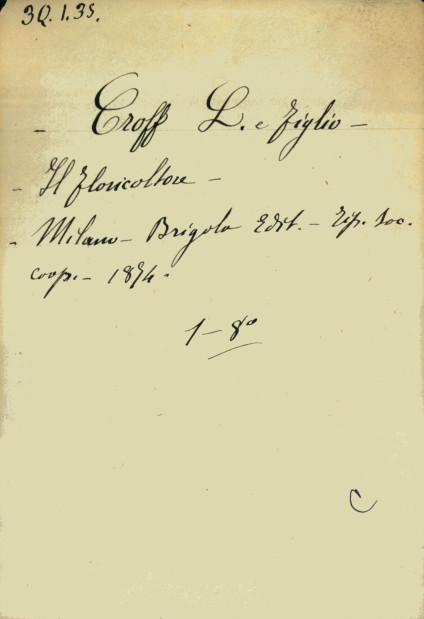 3Q.1.35.
- Croff L. e figlio -
- Il floricoltore -
- Milano - Brigola Edit. - Tip. Soc.
coop. - 1874.
1 - 8º
C